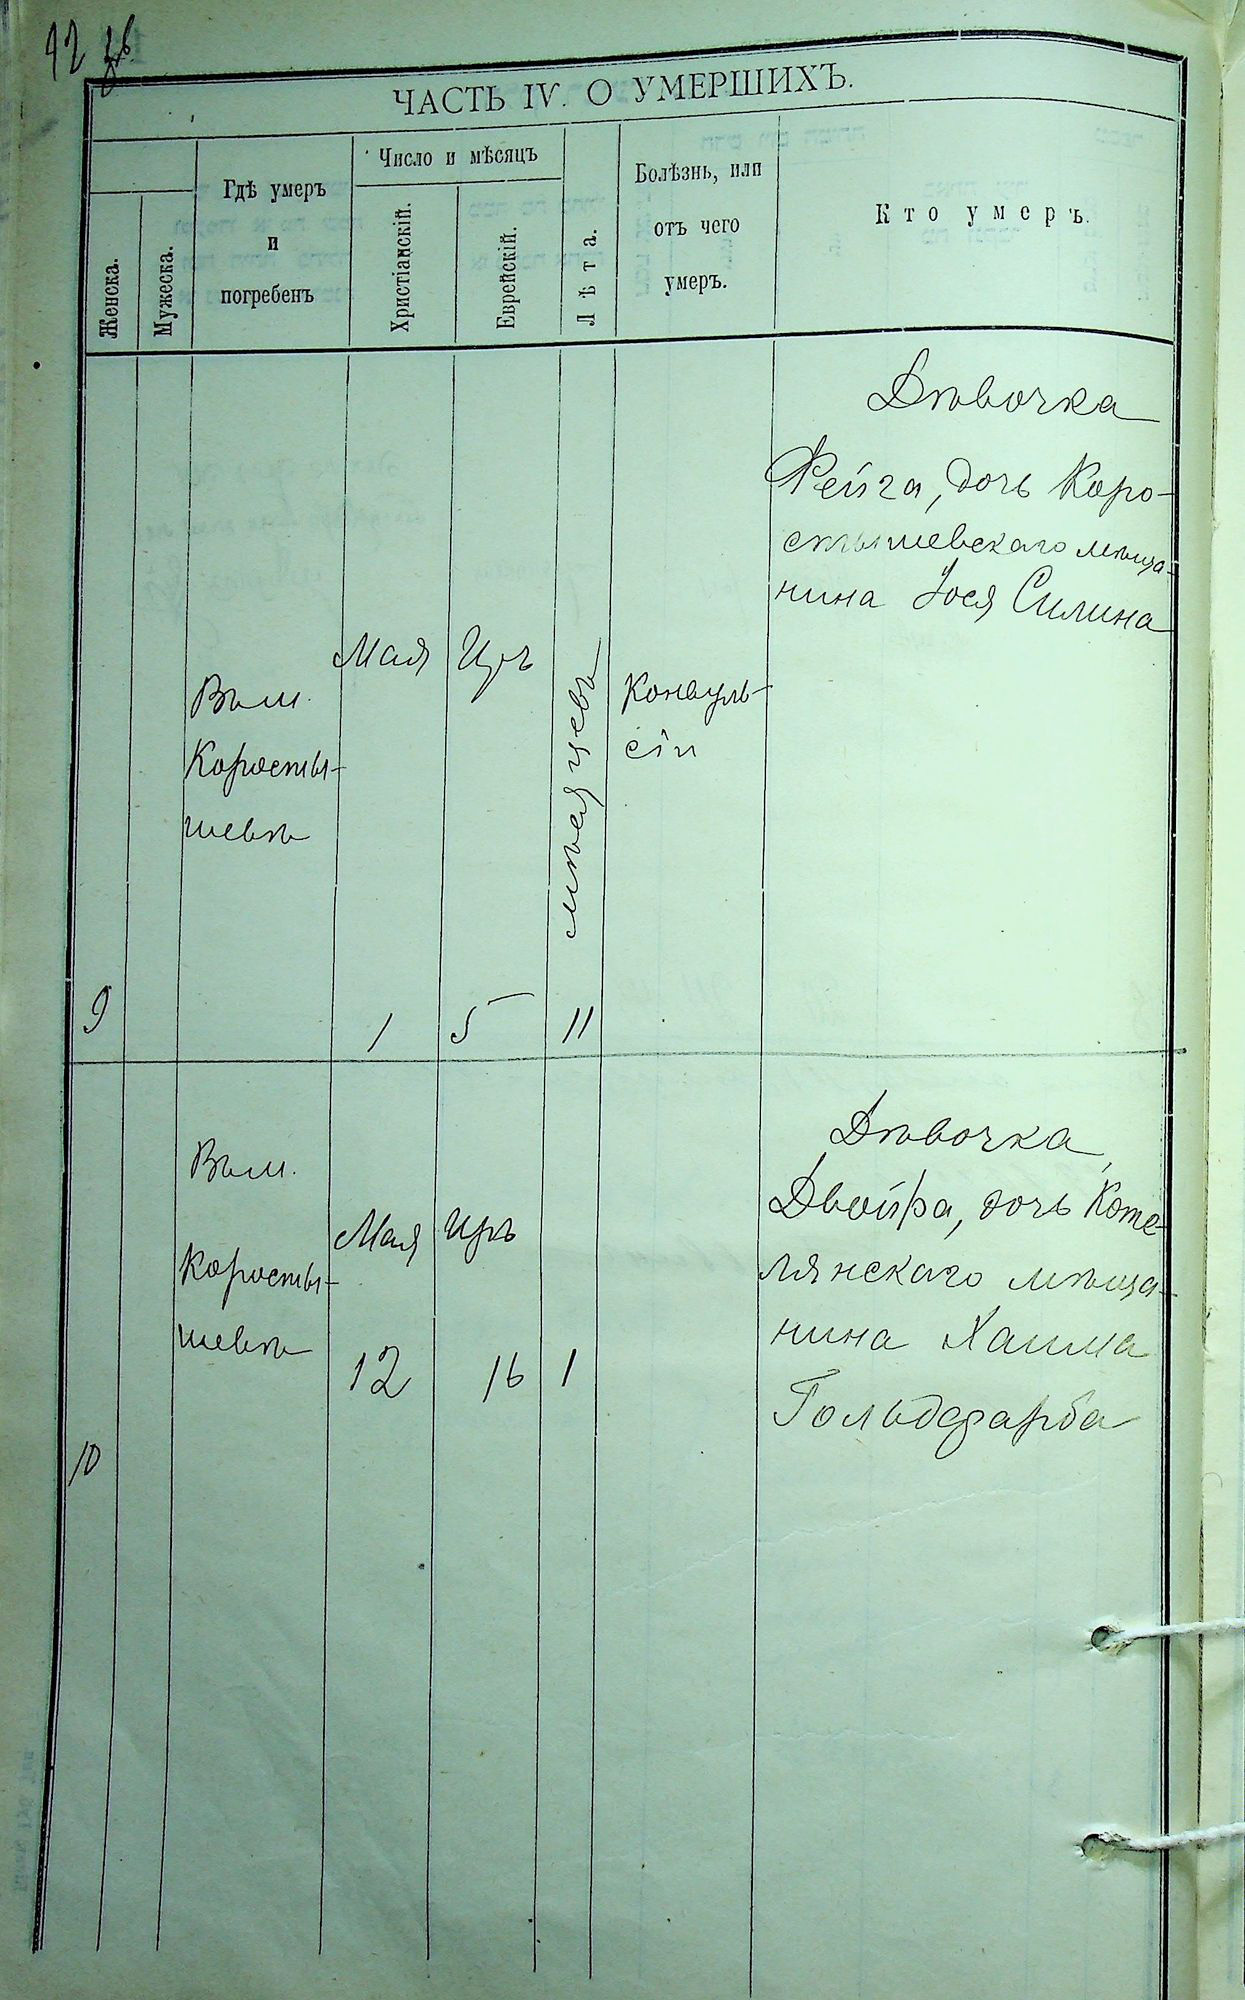 42
ЧАСТЬ IV. О УМЕРШИХЪ.
Женска.
Мужеска.
Гдѣ умеръ
и
погребенъ
Число и мѣсяцъ
Христіанскій.
Еврейскій.
Лѣта.
Болѣзнь, или
отъ чего
умеръ.
Кто умеръ.
9
Въ м.
Коросты-
шевѣ
Мая
1
Иръ
5
11
мѣсяцевъ
Конвуль-
сіи
Дѣвочка
Фейга, дочь Коро-
стышевскаго мѣща-
нина Іося Силина
10
Въ м.
Коросты-
шевѣ
Мая
12
Иръ
16
1
Дѣвочка
Двойра, дочь Коте-
лянскаго мѣща-
нина Хаима
Гольдфарба